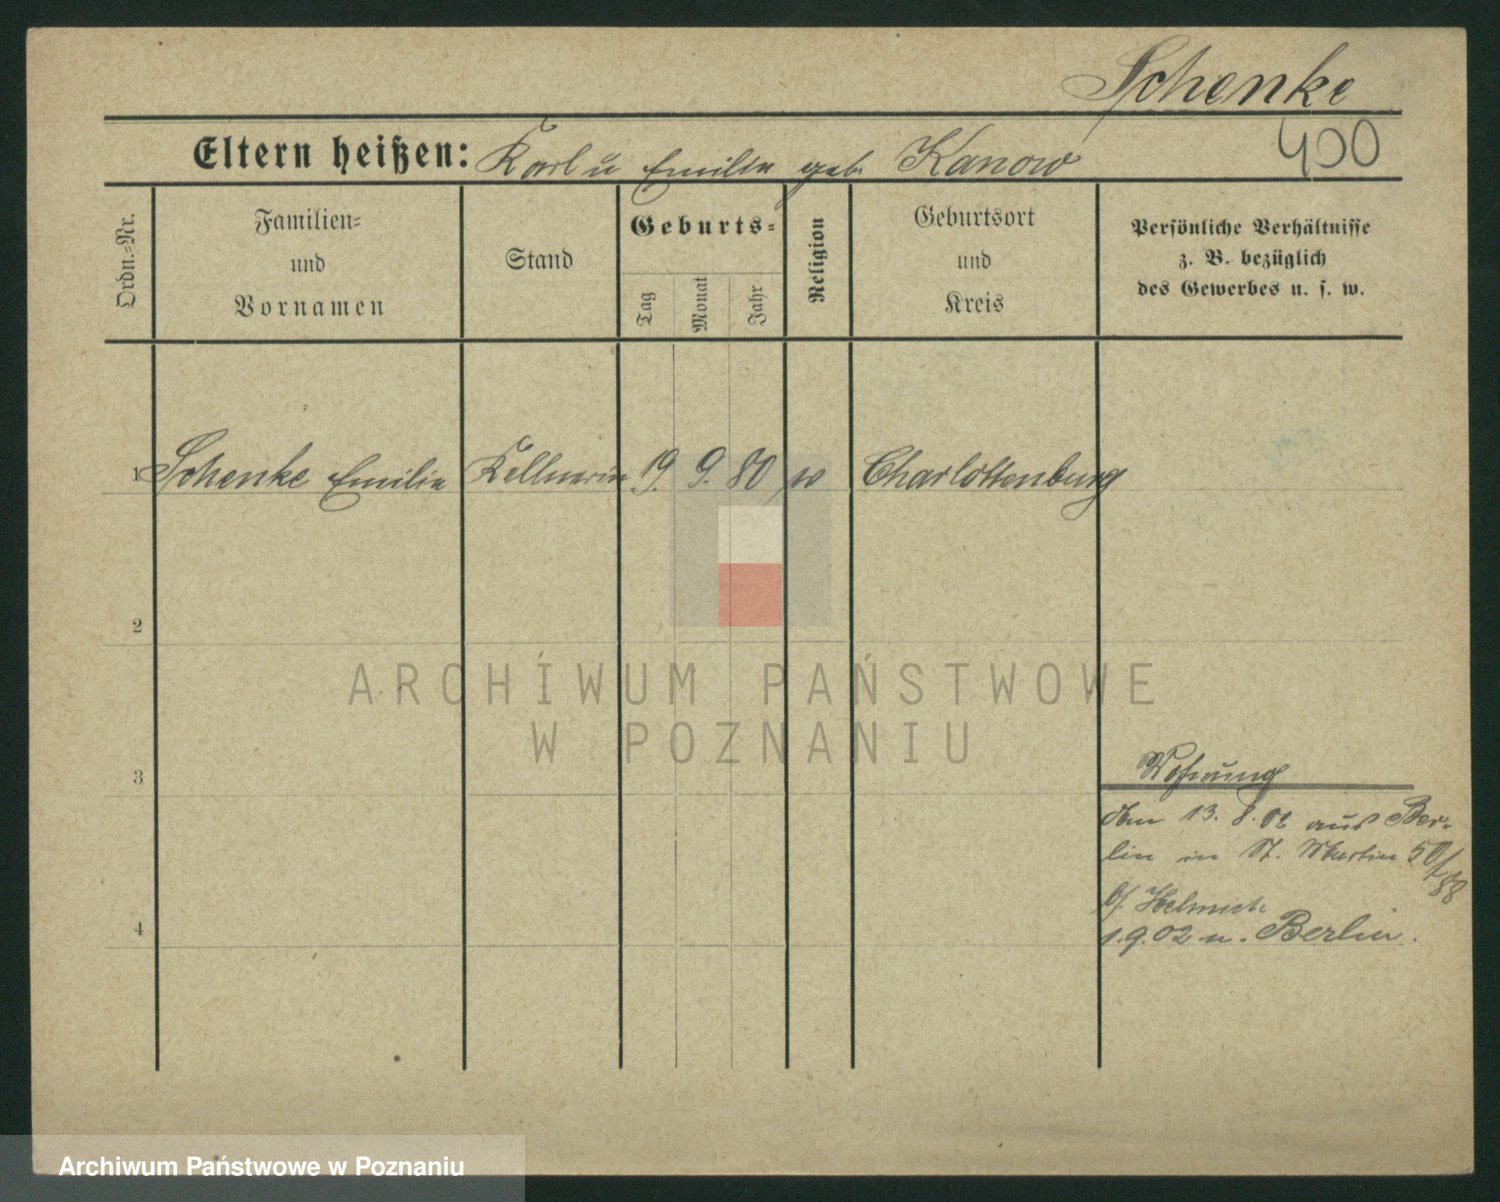 Schenke
400
Eltern heißen: Karl u Emilie geb. Kanow
Ordn.-Nr.
Familien-
und
Vornamen
Stand
Geburts-
Tag
Monat
Jahr
Religion
Geburtsort
und
Kreis
Persönliche Verhältnisse
z. B. bezüglich
des Gewerbes u. s. w.
1 Schenke Emilie Kellnerin 19. 9. 80 Charlottenburg
2
3
4
Wohnung
Am 13. 8. 02 aus Ber-
lin in St. Martin 50/
b/. Helmich
1.9.02 n. Berlin.
ARCHIWUM PAŃSTWOWE
W POZNANIU
Archiwum Państwowe w Poznaniu